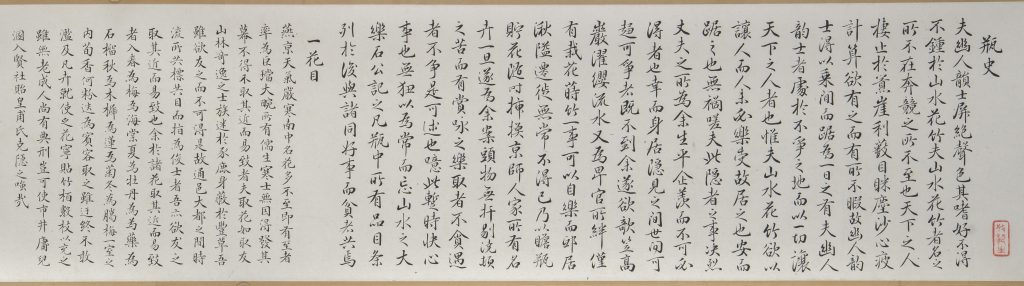 瓶史
夫幽人韻士屏絕聲色其嗜好不得
不鍾於山水花竹夫山水花竹者名之
所不在奔競之所不至也天下之人
棲止於囂崖利藪目眯塵沙心疲
計算欲有之而有所不暇故幽人韻
士得以乘間而踞為一日之有夫幽人
韻士者處於不爭之地而以一切讓
天下之人者也惟夫山水花竹欲以
讓人而人未必樂受故居之也安而
踞之也無禍嗟夫此隱者之事決烈
丈夫之所為余生平企羨而不可必
得者也幸而身居隱見之間世間可
趨可爭者既不到余遂欲欹笠高
巖濯纓流水又為卑官所絆僅
有栽花蒔竹一事可以自樂而邸居
湫隘遷徙無常不得已乃以膽瓶
貯花隨時插換京師人家所有名
卉一旦遂為余案頭物無扞剔澆頓
之苦而有賞咏之樂取者不貪遇
者不爭是可述也噫此暫時快心
事也無狃以為常而忘山水之大
樂石公記之凡瓶中所有品目條
列於後與諸同好事而貧者共焉
一花目
燕京天氣嚴寒南中名花多不至即有至者
率為巨璫大畹所有儒生寒士無因得發其
幕不得不取其近而易致者夫取花如取友
山林奇逸之士族迷於鹿豕身蔽於豐草吾
雖欲友之而不可得是故通邑大都之間時
流所共標共目而指為俊士者吾亦欲友之
取其近而易致也余於諸花取其近而易致
者入春為梅為海棠夏為牡丹為芍藥為
石榴秋為木樨為蓮為菊冬為臘梅一室之
內荀香何粉迭為賓客取之雖近終不敢
濫及凡卉就使乏花寧貯竹柏數枝以充之
雖無老成人尚有典刑豈可使市井庸兒
溷入賢社貽皇甫氏充隱之嗤哉